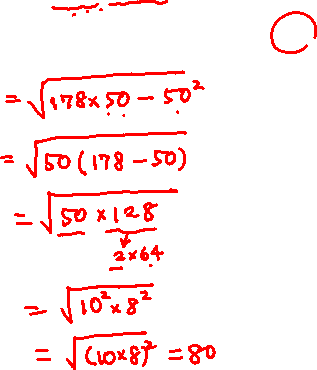 = √(178×50 − 50²)
= √(50(178−50))
= √(50 × 128)
2×64
= √(10² × 8²)
= √((10×8)²) = 80